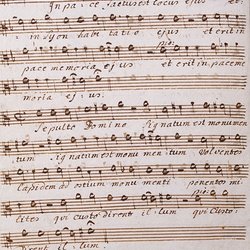 In pa ce factus est locus ejus et
in Syon habi tatio ejus et erit in
pia:
pace memoria ejus et erit in pace me
moria ejus.
Sepulto Domino signatum est monumen
tum signatum est monu mentum Volventes
Lapidem ad ostium monu menti ponentes mi
lites qui custo dirent il lum qui custo
dirent il lum.